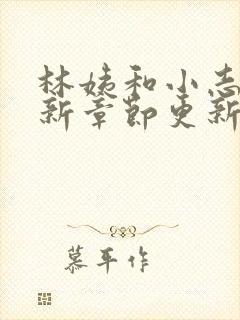 林姨和小志
新章节更新
慕平作